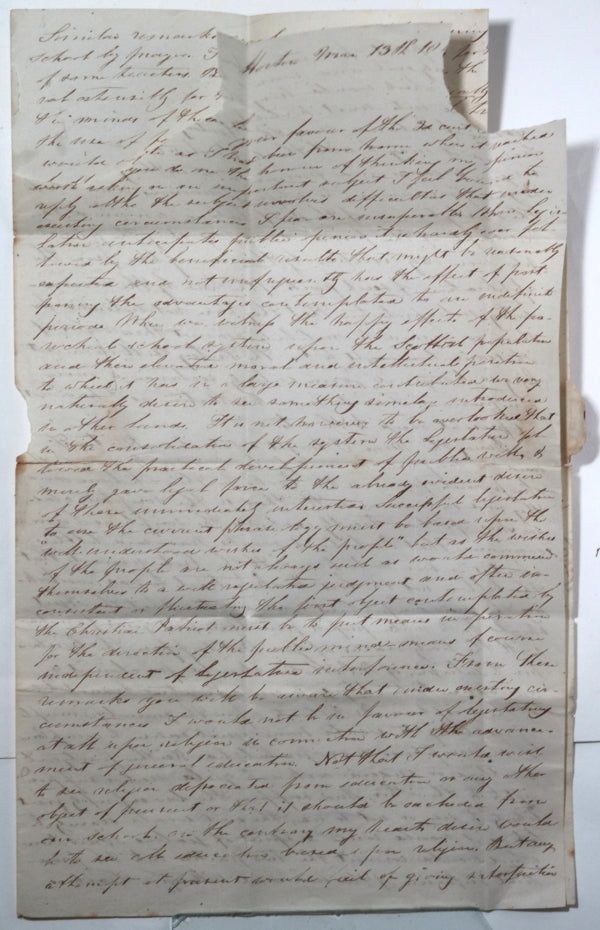 Similar remarks
school by prayer
of some teachers
not ostensibly for
the minds of the
the use of
Horton Mar 13th 18
your favour of the 3d
would as I was from home when it reached
you do me the honour of thinking my opinion
worth asking on an important subject I feel bound to
reply altho the subject involves difficulties that under
existing circumstances I fear are insuperable Where legis
lation anticipates public opinion it is hardly ever fol
lowed by the beneficial results that might be reasonably
expected and not unfrequently has the effect of post
poning the advantages contemplated to an indefinite
period When we witness the happy effects of the pa-
rochial school system upon the Scottish population
and the elevated moral and intellectual position
to which it has in a large measure contributed we very
naturally desire to see something similar introduced
in other lands. It is not however to be overlooked that
in the consolidation of the system the Legislature fol
lowed the practical development of public will &
merely gave legal force to the already evident desire
of those immediately interested Successful legislation
to use the current phrase they must be based upon the
"well understood wishes of the people" but as the wishes
of the people are not always such as would commend
themselves to a well regulated judgment and often in-
consistent or the first object contemplated by
the Christian Patriot must be to put means in operation
for the direction of the public mind means of course
independent of Legislative interference. From these
remarks you will be aware that under existing cir-
cumstances I would not be in favour of legislating
at all upon religion in connection with the advance-
ment of general education. Not that I would wish
to see religion depreciated from education or any other
object of pursuit or that it should be excluded from
our schools on the contrary my hearts desire would
be to see all education based upon religion. But any
attempt at present would fail of giving satisfaction